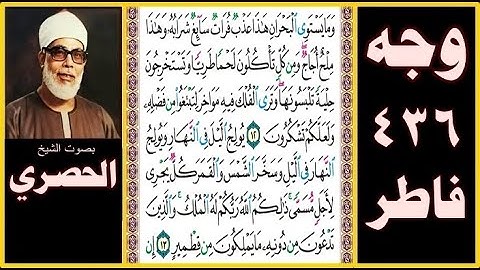 وجه
٤٣٦
فاطر
وَمَا يَسْتَوِي الْبَحْرَانِ هَٰذَا عَذْبٌ فُرَاتٌ سَائِغٌ شَرَابُهُ وَهَٰذَا
مِلْحٌ أُجَاجٌ وَمِن كُلٍّ تَأْكُلُونَ لَحْمًا طَرِيًّا وَتَسْتَخْرِجُونَ
حِلْيَةً تَلْبَسُونَهَا وَتَرَى الْفُلْكَ فِيهِ مَوَاخِرَ لِتَبْتَغُوا مِن فَضْلِهِ
وَلَعَلَّكُمْ تَشْكُرُونَ ١٢ يُولِجُ اللَّيْلَ فِي النَّهَارِ وَيُولِجُ
النَّهَارَ فِي اللَّيْلِ وَسَخَّرَ الشَّمْسَ وَالْقَمَرَ كُلٌّ يَجْرِي
لِأَجَلٍ مُّسَمًّى ذَٰلِكُمُ اللَّهُ رَبُّكُمْ لَهُ الْمُلْكُ وَالَّذِينَ
تَدْعُونَ مِن دُونِهِ مَا يَمْلِكُونَ مِن قِطْمِيرٍ ١٣ إِن
بصوت الشيخ
الحصري